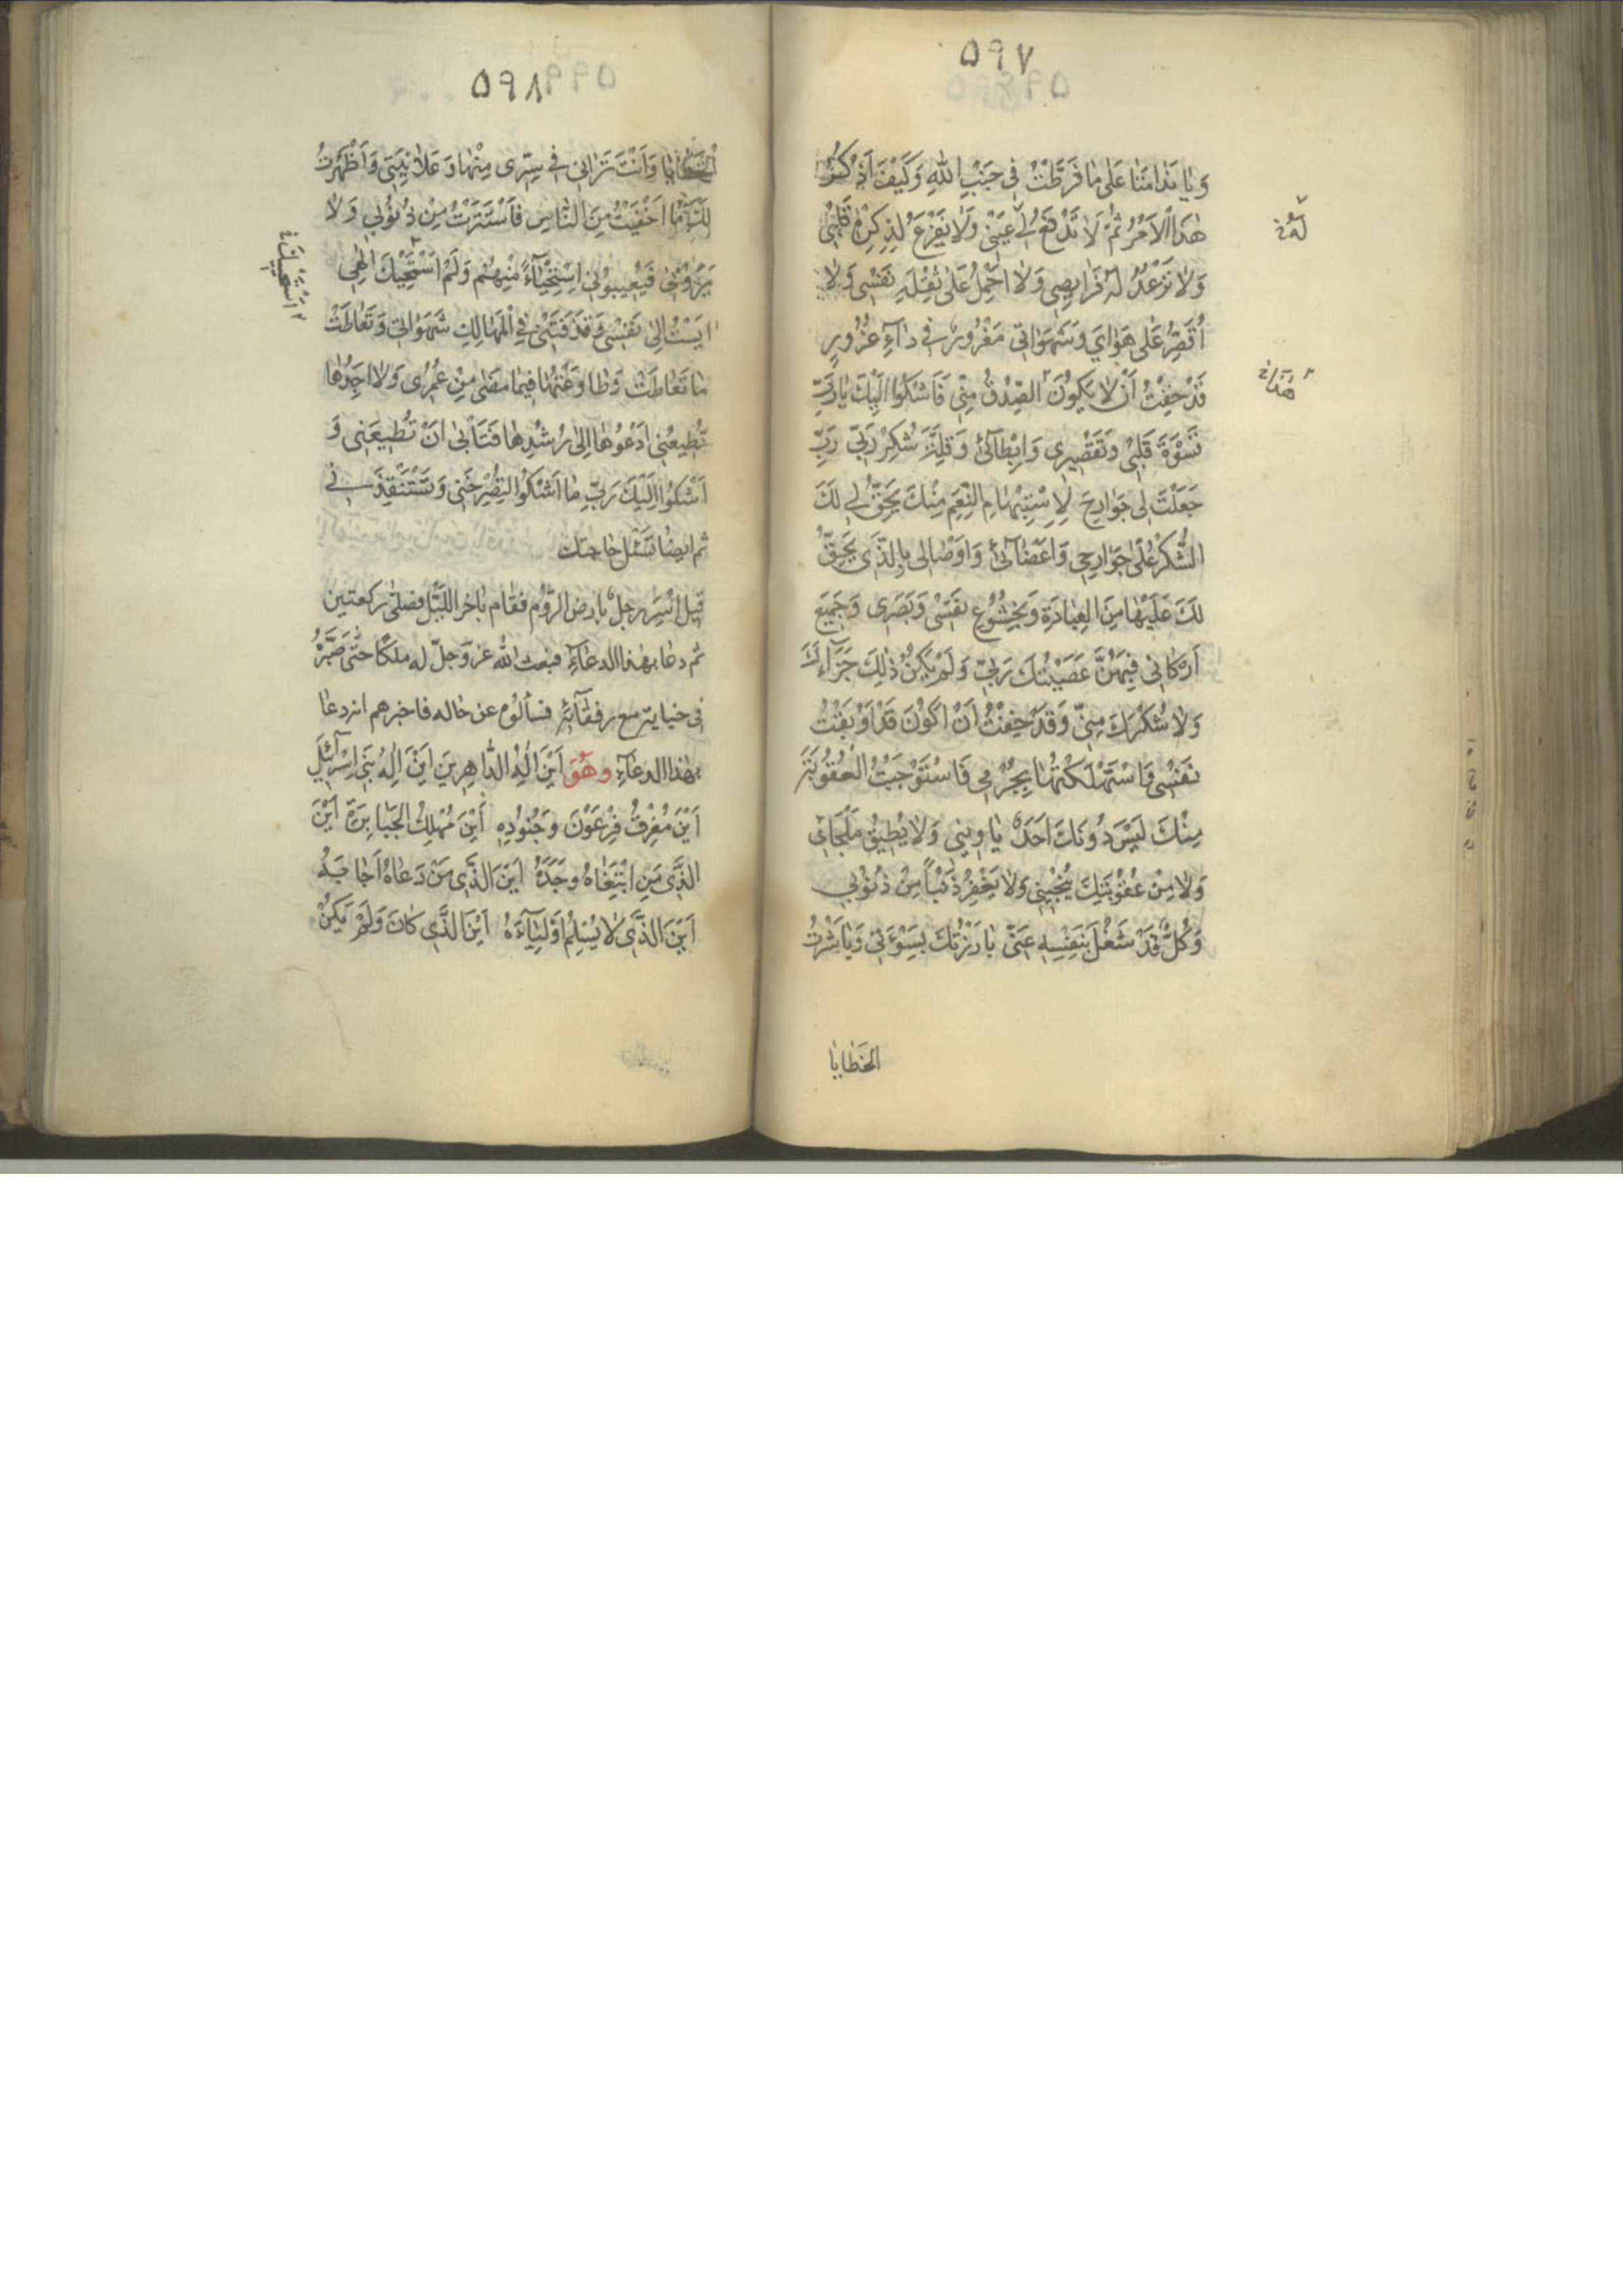 ۵۹۷
وَيا نَدامَتا عَلىٰ ما فَرَّطْتُ فى جَنْبِ اللّٰهِ وَكَيْفَ اَذْكُرُ
هٰذَا الْاَمْرَ ثُمَّ لا تَدْمَعُ لَهُ عَيْنى وَلا يَفْزَعُ لِذِكْرِهِ قَلْبى
لَهُ خ
وَلا تَرْعُدُ لَهُ فَرايِصِى وَلا اَحْمِلُ عَلىٰ ثِقْلِهِ نَفْسى وَلا
اُقَصِّرُ عَلىٰ هَوٰاىَ وَشَهَوٰاتى مَغْرُورٌ فى دٰآءِ غُرُورٍ
قَدْ خِفْتُ اَنْ لا يَكُونَ الصِّدْقُ مِنّى فَاَشْكُوا اِلَيْكَ يا رَبِّ
هٰذا خ
قَسْوَةَ قَلْبى وَتَقْصيرى وَاِبْطآئى وَقِلَّةَ شُكْرى رَبّى رَبِّ
جَعَلْتَ لى جَوارِحَ لِاسْتِتْمامِ النِّعَمِ مِنْكَ يَحِقُّ لى لَكَ
الشُّكْرُ عَلىٰ جَوارِحى وَاَعْضآئى وَاَوْصالى بِالَّذى يَحِقُّ
لَكَ عَلَيْها مِنَ الْعِبادَةِ وَبِخُشُوعِ نَفْسى وَبَصَرى وَجَميعِ
اَرْكانى فَبِهِنَّ عَصَيْتُكَ رَبّى وَلَمْ يَكُنْ ذٰلِكَ جَزآءَكَ
وَلا شُكْرَكَ مِنّى وَقَدْ خِفْتُ اَنْ اَكُونَ قَدْ اَوْبَقْتُ
نَفْسى وَاسْتَهْلَكْتُها بِجُرْمى فَاسْتَوْجَبْتُ الْعُقُوبَةَ
مِنْكَ لَيْسَ دُونَكَ اَحَدٌ يٰاوينى وَلا يُطيقُ مَلْجَائى
وَلا مِنْ عُقُوبَتِكَ يُنْجينى وَلا يَغْفِرُ ذَنْباً مِنْ ذُنُوبى
وَكُلٌّ قَدْ شُغِلَ بِنَفْسِهِ عَنّى بارَزْتُكَ بِسَوْءَتى وَباشَرْتُ
الْخَطايا
۵۹۸
الْخَطايا وَاَنْتَ تَرانى فى سِرّى مِنْها وَعَلانِيَتى وَاَظْهَرْتُ
لَكَ ما اَخْفَيْتُ مِنَ النّاسِ فَاسْتَتَرْتُ مِنْ ذُنُوبى وَلا
يَرَوْنى فَيَعيبُونى اسْتِحْيآءً مِنْهُمْ وَلَمْ اَسْتَحْيِكَ اِلٰهى
اَيِسْتُ اِلىٰ نَفْسى وَقَذَفَتْنى فِى الْمَهالِكِ شَهَواتى وَتَعاطَتْ
ما تَعاطَتْ وَطاوَعْتُها فيما مَضىٰ مِنْ عُمُرى وَلا اَجِدُها
تُطيعُنى اَدْعُوها اِلىٰ رُشْدِها فَتَاْبىٰ اَنْ تُطيعَنى وَ
اَشْكُوا اِلَيْكَ رَبِّ ما اَشْكُوا لِتُصْرِخَنى وَتَسْتَنْقِذَنى
ثم ايضا تسئل حاجتك
قيل اسر رجل بارض الروم فقام باخر الليل فصلى ركعتين
ثم دعا بهذا الدعآء فبعث الله عز وجل له ملكا حتى صيّره
فى خبايته مع رفقآئه فسألوه عن حاله فاخبرهم انه دعا
بهذا الدعآء وهو اَيْنَ اِلٰهُ الدّاهِرينَ اَيْنَ اِلٰهُ بَنى اِسْرآئيلَ
اَيْنَ مُغْرِقُ فِرْعَوْنَ وَجُنُودِهِ اَيْنَ مُهْلِكُ الْجَبابِرَةِ اَيْنَ
الَّذى مَنِ ابْتَغاهُ وَجَدَهُ اَيْنَ الَّذى مَنْ دَعاهُ اَجابَهُ
اَيْنَ الَّذى لا يُسْلِمُ اَوْلِيآءَهُ اَيْنَ الَّذى كانَ وَلَمْ يَكُنْ